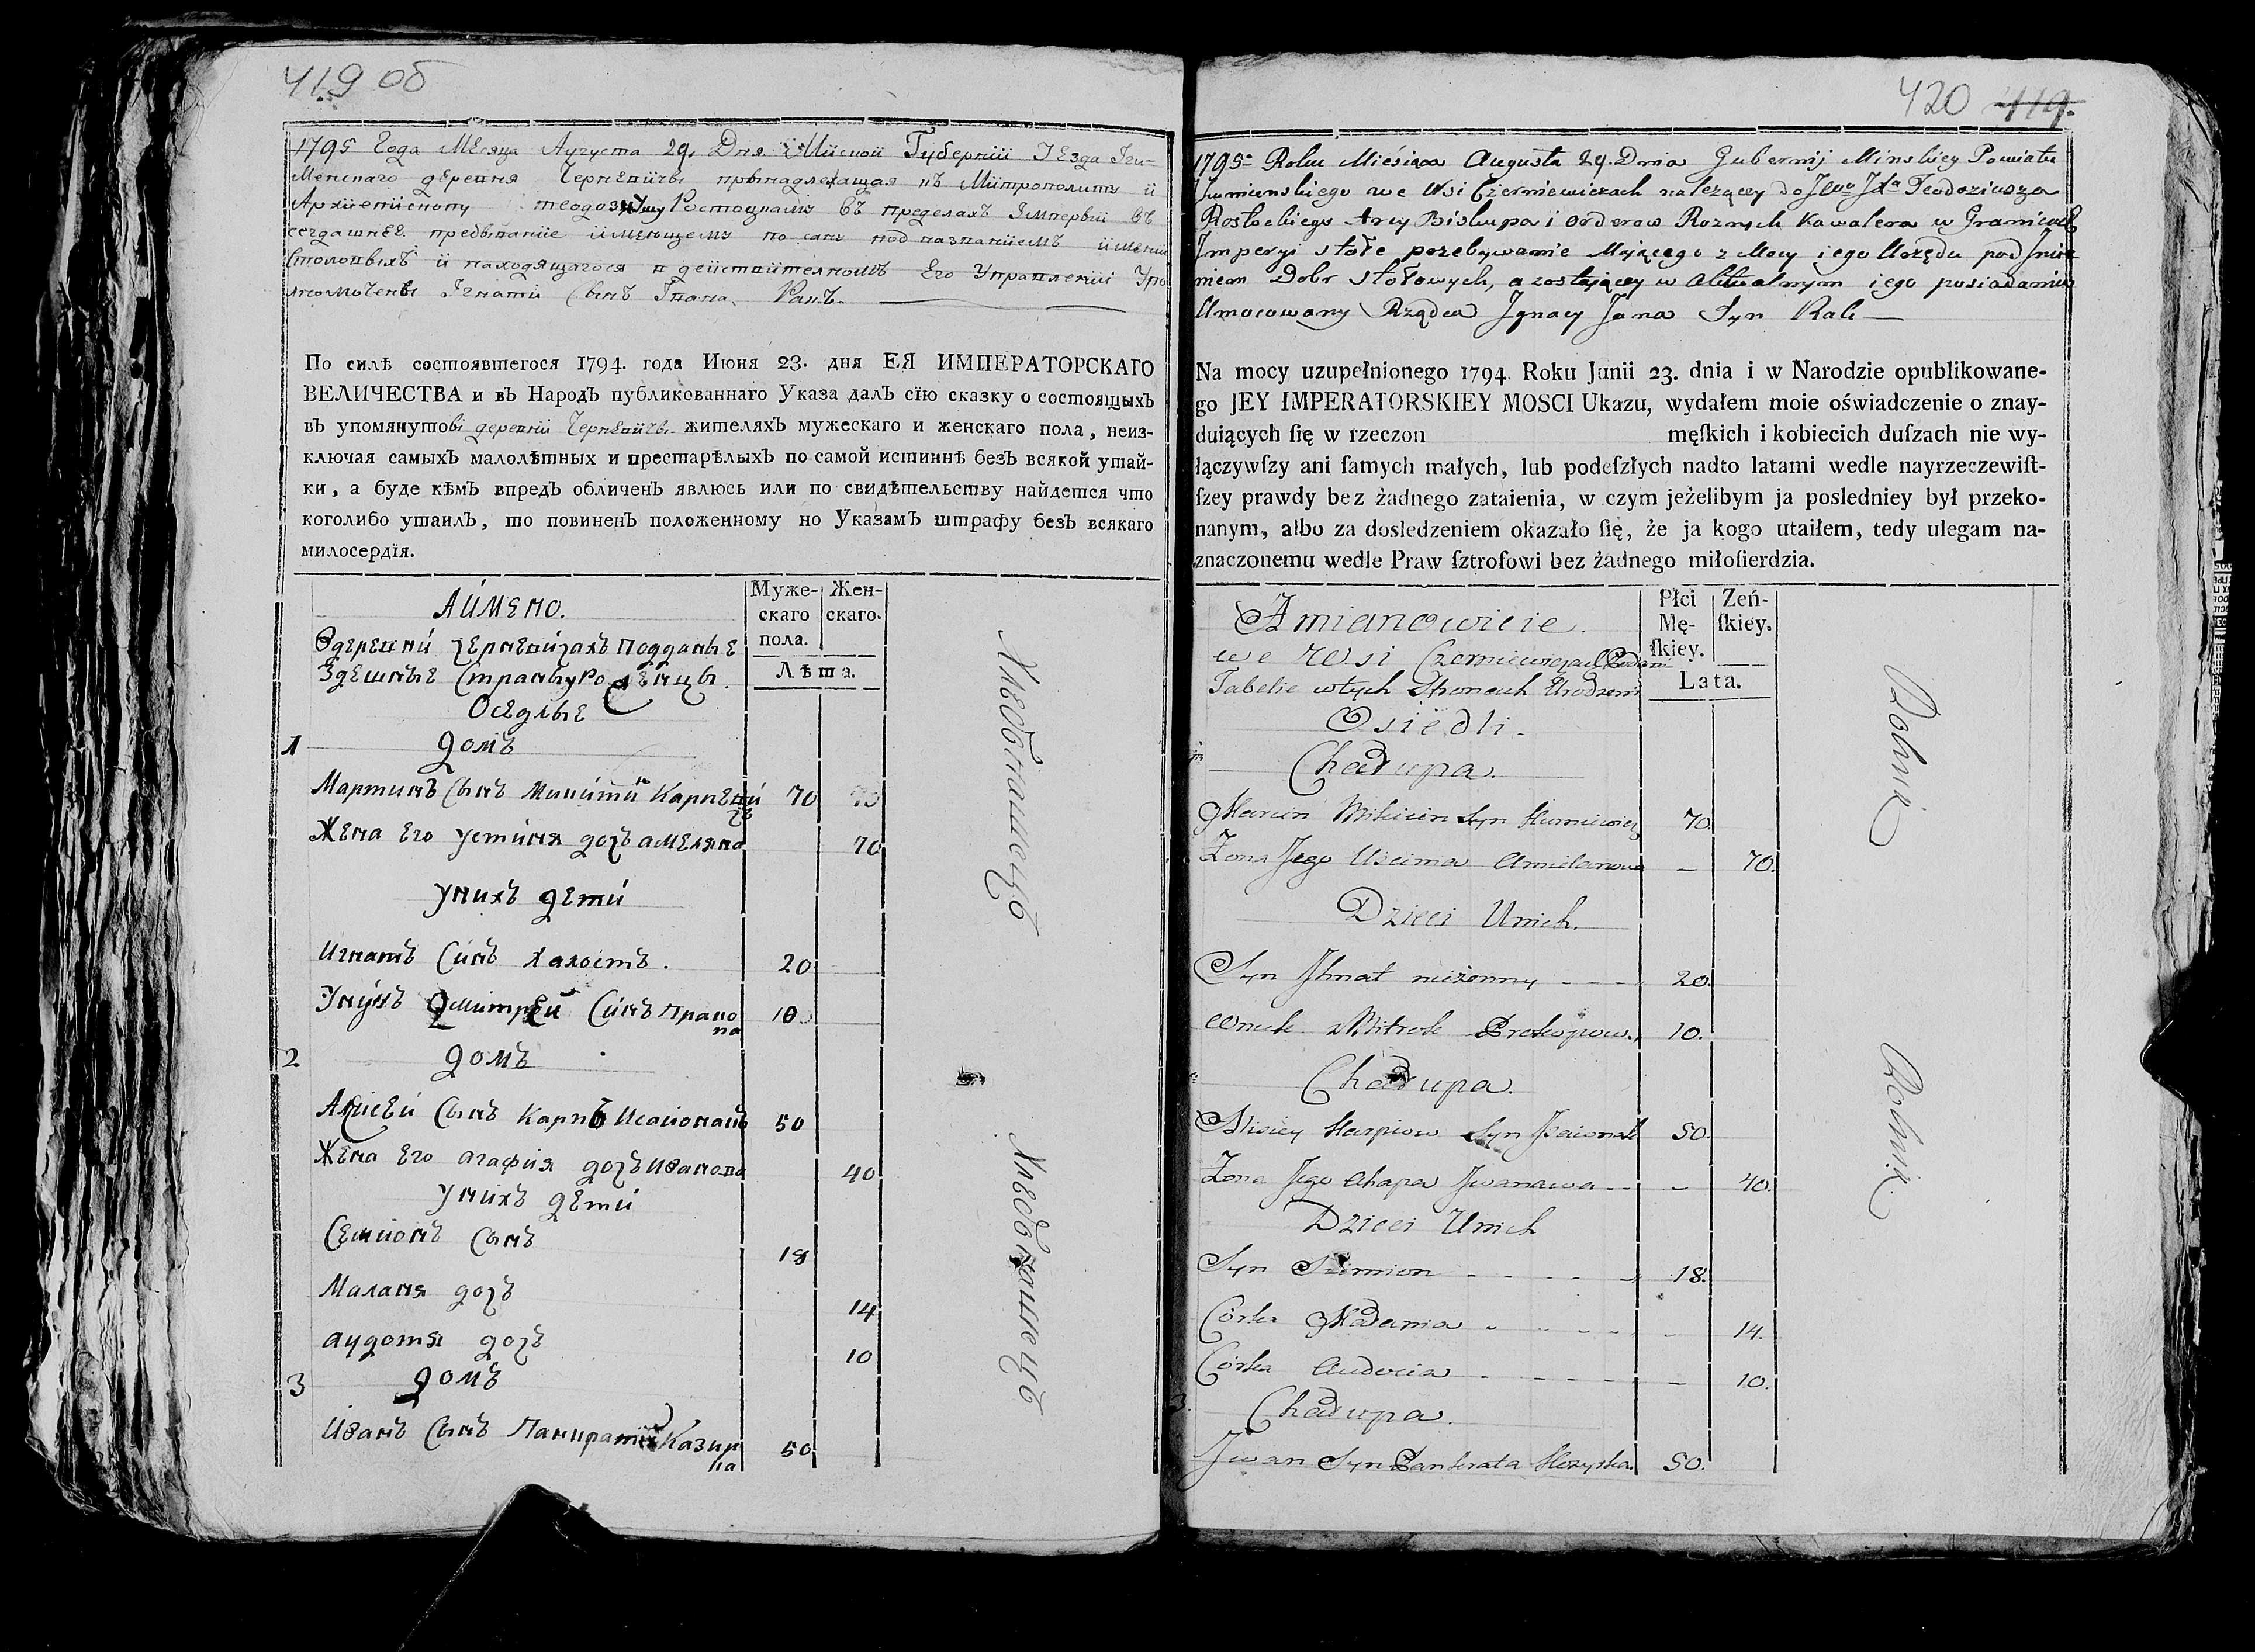 419 об
1795 Года Месяца Августа 29. Дня Минской Губернии Уезда Игу-
менскаго деревня Черневичы принадлежащая къ Митрополиту и
Архиепископу Ростоцкаму въ пределахъ Империи въ
пребывание имеющему по под названиемъ имений
Столовыхъ и находящагося в действителномъ Его Управлении Упо
лномоченъ Игнати Сынъ Ивана Рапъ.
По силѣ состоявшегося 1794. года Июня 23. дня ЕЯ ИМПЕРАТОРСКАГО
ВЕЛИЧЕСТВА и въ Народъ публикованнаго Указа далъ сїю сказку о состоящыхъ
въ упомянутові деревни Черневичы жителяхъ мужескаго и женскаго пола, неиз-
ключая самыхъ малолѣтных и престарѣлыхъ по самой истиннѣ безъ всякой утай-
ки, а буде кѣмъ впредь обличенъ явлюсь или по свидѣтельству найдется что
коголибо утаилъ, то повиненъ положенному но Указамъ штрафу безъ всякаго
милосердїя.
АИМЕНО.
Муже-
скаго
пола.
Жен-
скаго.
Лѣта.
Вдеревни Черневичахъ Подданые
Здешные Страны Уроженцы.
Оседлые
1 Домъ
Мартинъ Сынъ Микити Карневи
чъ 70 70
Жена Его Устиня дочъ амеляна 70
Унихъ дети
Игнатъ Синъ Халостъ. 20
Унукъ Дмитрей Синъ Прако
па 10
2 Домъ
Алисеи Сынъ Карпъ Исаионакъ 50
Жена Его агафия дочъ Иванова 40
Унихъ дети
Семионъ Сынъ 18
Маланя дочъ 14
аудотя дочъ 10
3 Домъ
Иванъ Сынъ Панкрати Казыр
ка 50
Хлебопашецъ
Хлебопашецъ
420 419.
1795= Roku Miesiąca Augusta 29. Dnia Gubernij Minskiey Powiatu
Ihumenskiego we Wsi Czerniewiczach należącey do Teodoziusza
Rostockiego Arcy Biskupa i Orderow Roznych Kawalera w Granicach
Imperyi stołe przebywanie Mającego z Mocy iego Urzędu pod Imie-
niem Dobr stołowych, a zostaiącey w Aktualnym iego posiadaniu
Umocowany Rządca Jgnacy Jana Syn Rab
Na mocy uzupełnionego 1794. Roku Junii 23. dnia i w Narodzie opublikowane-
go JEY IMPERATORSKIEY MOSCI Ukazu, wydałem moie oświadczenie o znay-
duiących ſię w rzeczon męſkich i kobiecich duſzach nie wy-
łączywſzy ani ſamych małych, lub podeſzłych nadto latami wedle nayrzeczewiſt-
ſzey prawdy bez żadnego zataienia, w czym jeżelibym ja posledniey był przeko-
nanym, albo za dosledzeniem okazało ſię, że ja kogo utaiłem, tedy ulegam na-
znaczonemu wedle Praw ſztrofowi bez żadnego miłoſierdzia.
Amianowicie.
Płci
Mę-
ſkiey.
Zeń-
ſkiey.
Lata.
we Wsi Czerniewiczach Podani
Tabelie wtych Stronach Urodzeni
Osiedli.
Chałupa.
Marcin Mikicin Syn Kurniewicz 70.
Zona Jego Uscima Amelanowa — 70.
Dzieci Unich.
Syn Jhnat nieżenny 20.
Wnuk Mitrok Prokopow. 10.
Chałupa.
Alisiey Karpiow Syn Jsaionak 50.
Zona Jego Ahapa Jwanawa — 40.
Dzieci Unich
Syn Siemion 18.
Córka Małania 14.
Córka Audocia — 10.
3. Chałupa.
Jwan Syn Pankrata Kozyrka. 50.
Rolnik
Rolnik.